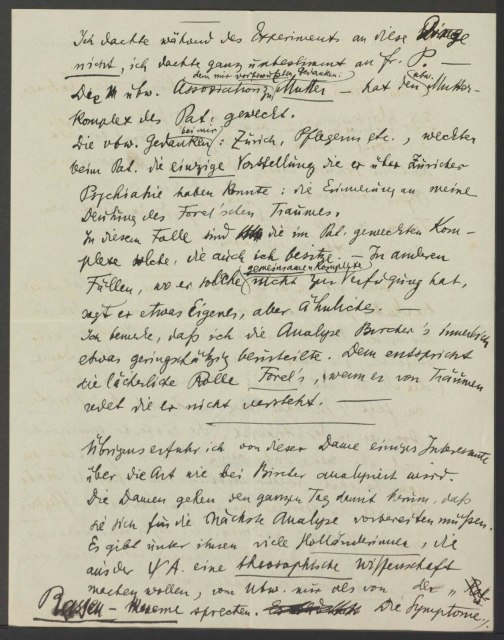 Ich dachte während des Experiments an diese Dinge
nicht, ich dachte ganz unbestimmt an Fr. P. —
dem mir vorbewußten Gedanken:
Die ubw. Association zu Mutter — hat den ubw. Mutter-
komplex des Pat. geweckt.
Die vbw. Gedanken bei mir: Zürich, Pflegerin etc., weckten
beim Pat. die einzige Vorstellung die er über Züricher
Psychiatrie haben konnte: die Erinnerung an meine
Deutung des Forel'schen Traumes.
In diesem Falle sind die im Pat. geweckten Kom-
plexe solche, die auch ich besitze. — In anderen
Fällen, wo er solche gemeinsame Komplexe nicht zur Verfügung hat,
sagt er etwas Eigenes, aber Ähnliches. —
Ich bemerke, daß ich die Analyse Bircher's innerlich
etwas geringschätzig beurteilte. Dem entspricht
die lächerliche Rolle Forel's, wenn er von Träumen
redet die er nicht versteht. —
Übrigens erfuhr ich von dieser Dame einiges Interessante
über die Art wie bei Bircher analysiert wird.
Die Damen gehen den ganzen Tag damit herum, daß
sie sich für die nächste Analyse vorbereiten müssen.
Es gibt unter ihnen viele Holländerinnen, die
aus der ΨA. eine theosophische Wissenschaft
machen wollen, vom Ubw. nur als von der "
Rassen-Mneme sprechen. Die Symptome